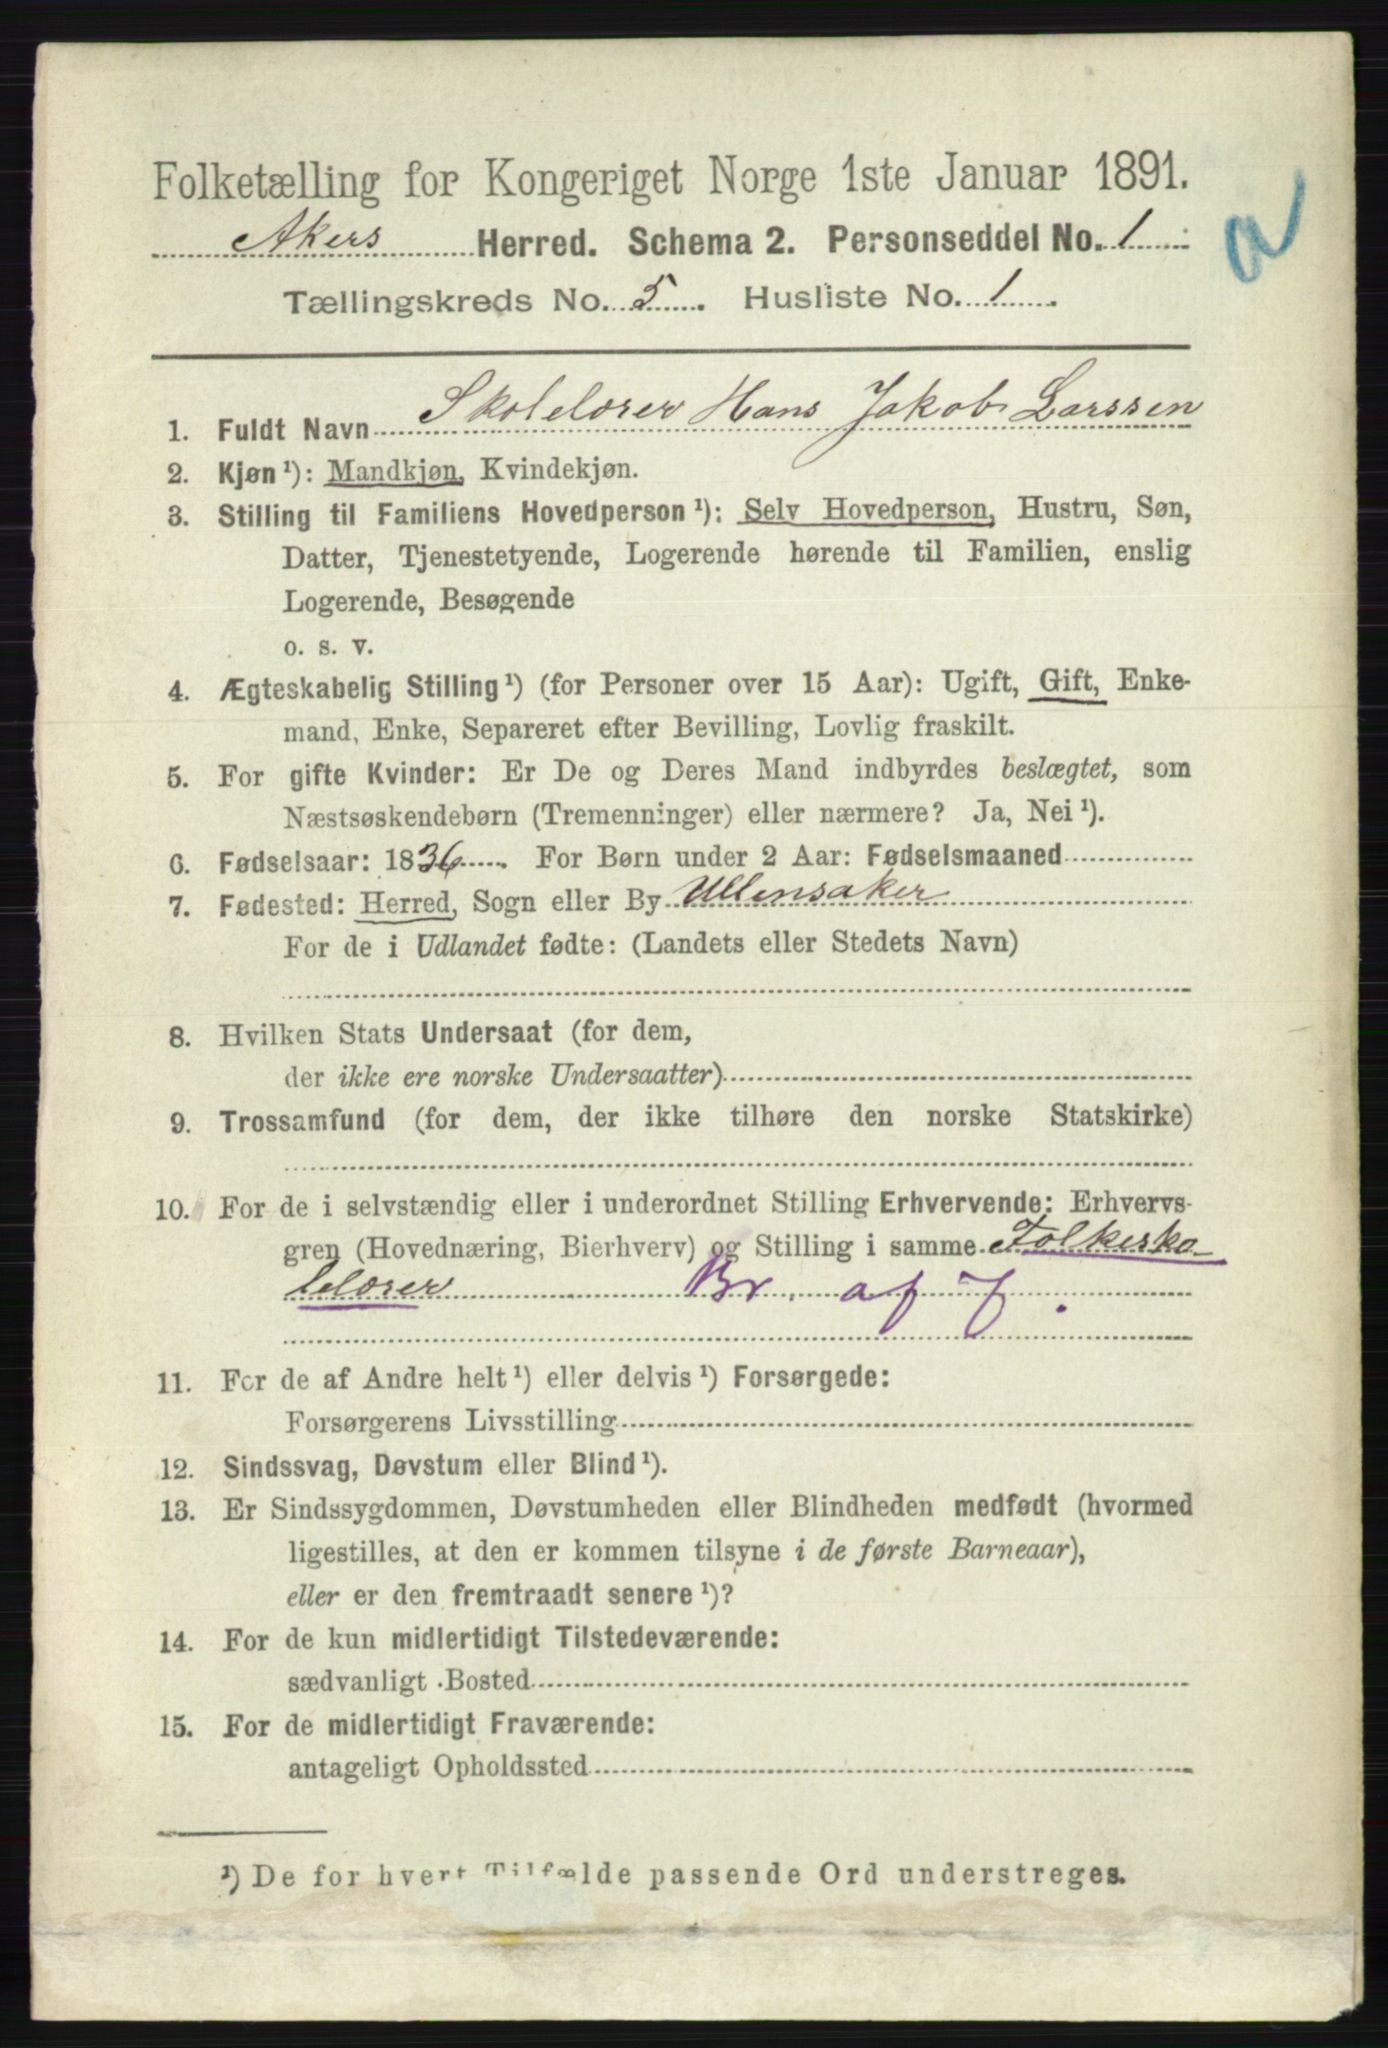 Folketælling for Kongeriget Norge 1ste Januar 1891.
a
Akers Herred. Schema 2. Personseddel No. 1
Tællingskreds No. 5. Husliste No. 1.
1. Fuldt Navn Skolelærer Hans Jakob Larssen
2. Kjøn ¹): Mandkjøn, Kvindekjøn.
3. Stilling til Familiens Hovedperson ¹): Selv Hovedperson, Hustru, Søn,
Datter, Tjenestetyende, Logerende hørende til Familien, enslig
Logerende, Besøgende
o. s. v.
4. Ægteskabelig Stilling ¹) (for Personer over 15 Aar): Ugift, Gift, Enke-
mand, Enke, Separeret efter Bevilling, Lovlig fraskilt.
5. For gifte Kvinder: Er De og Deres Mand indbyrdes beslægtet, som
Næstsøskendebørn (Tremenninger) eller nærmere? Ja, Nei ¹).
6. Fødselsaar: 1836. For Børn under 2 Aar: Fødselsmaaned
7. Fødested: Herred, Sogn eller By Ullensaker
For de i Udlandet fødte: (Landets eller Stedets Navn)
8. Hvilken Stats Undersaat (for dem,
der ikke ere norske Undersaatter)
9. Trossamfund (for dem, der ikke tilhøre den norske Statskirke)
10. For de i selvstændig eller i underordnet Stilling Erhvervende: Erhvervs-
gren (Hovednæring, Bierhverv) og Stilling i samme Folkesko
lelærer Br. af J.
11. For de af Andre helt ¹) eller delvis ¹) Forsørgede:
Forsørgerens Livsstilling
12. Sindssvag, Døvstum eller Blind ¹).
13. Er Sindssygdommen, Døvstumheden eller Blindheden medfødt (hvormed
ligestilles, at den er kommen tilsyne i de første Barneaar),
eller er den fremtraadt senere ¹)?
14. For de kun midlertidigt Tilstedeværende:
sædvanligt Bosted
15. For de midlertidigt Fraværende:
antageligt Opholdssted
¹) De for hvert Tilfælde passende Ord understreges.